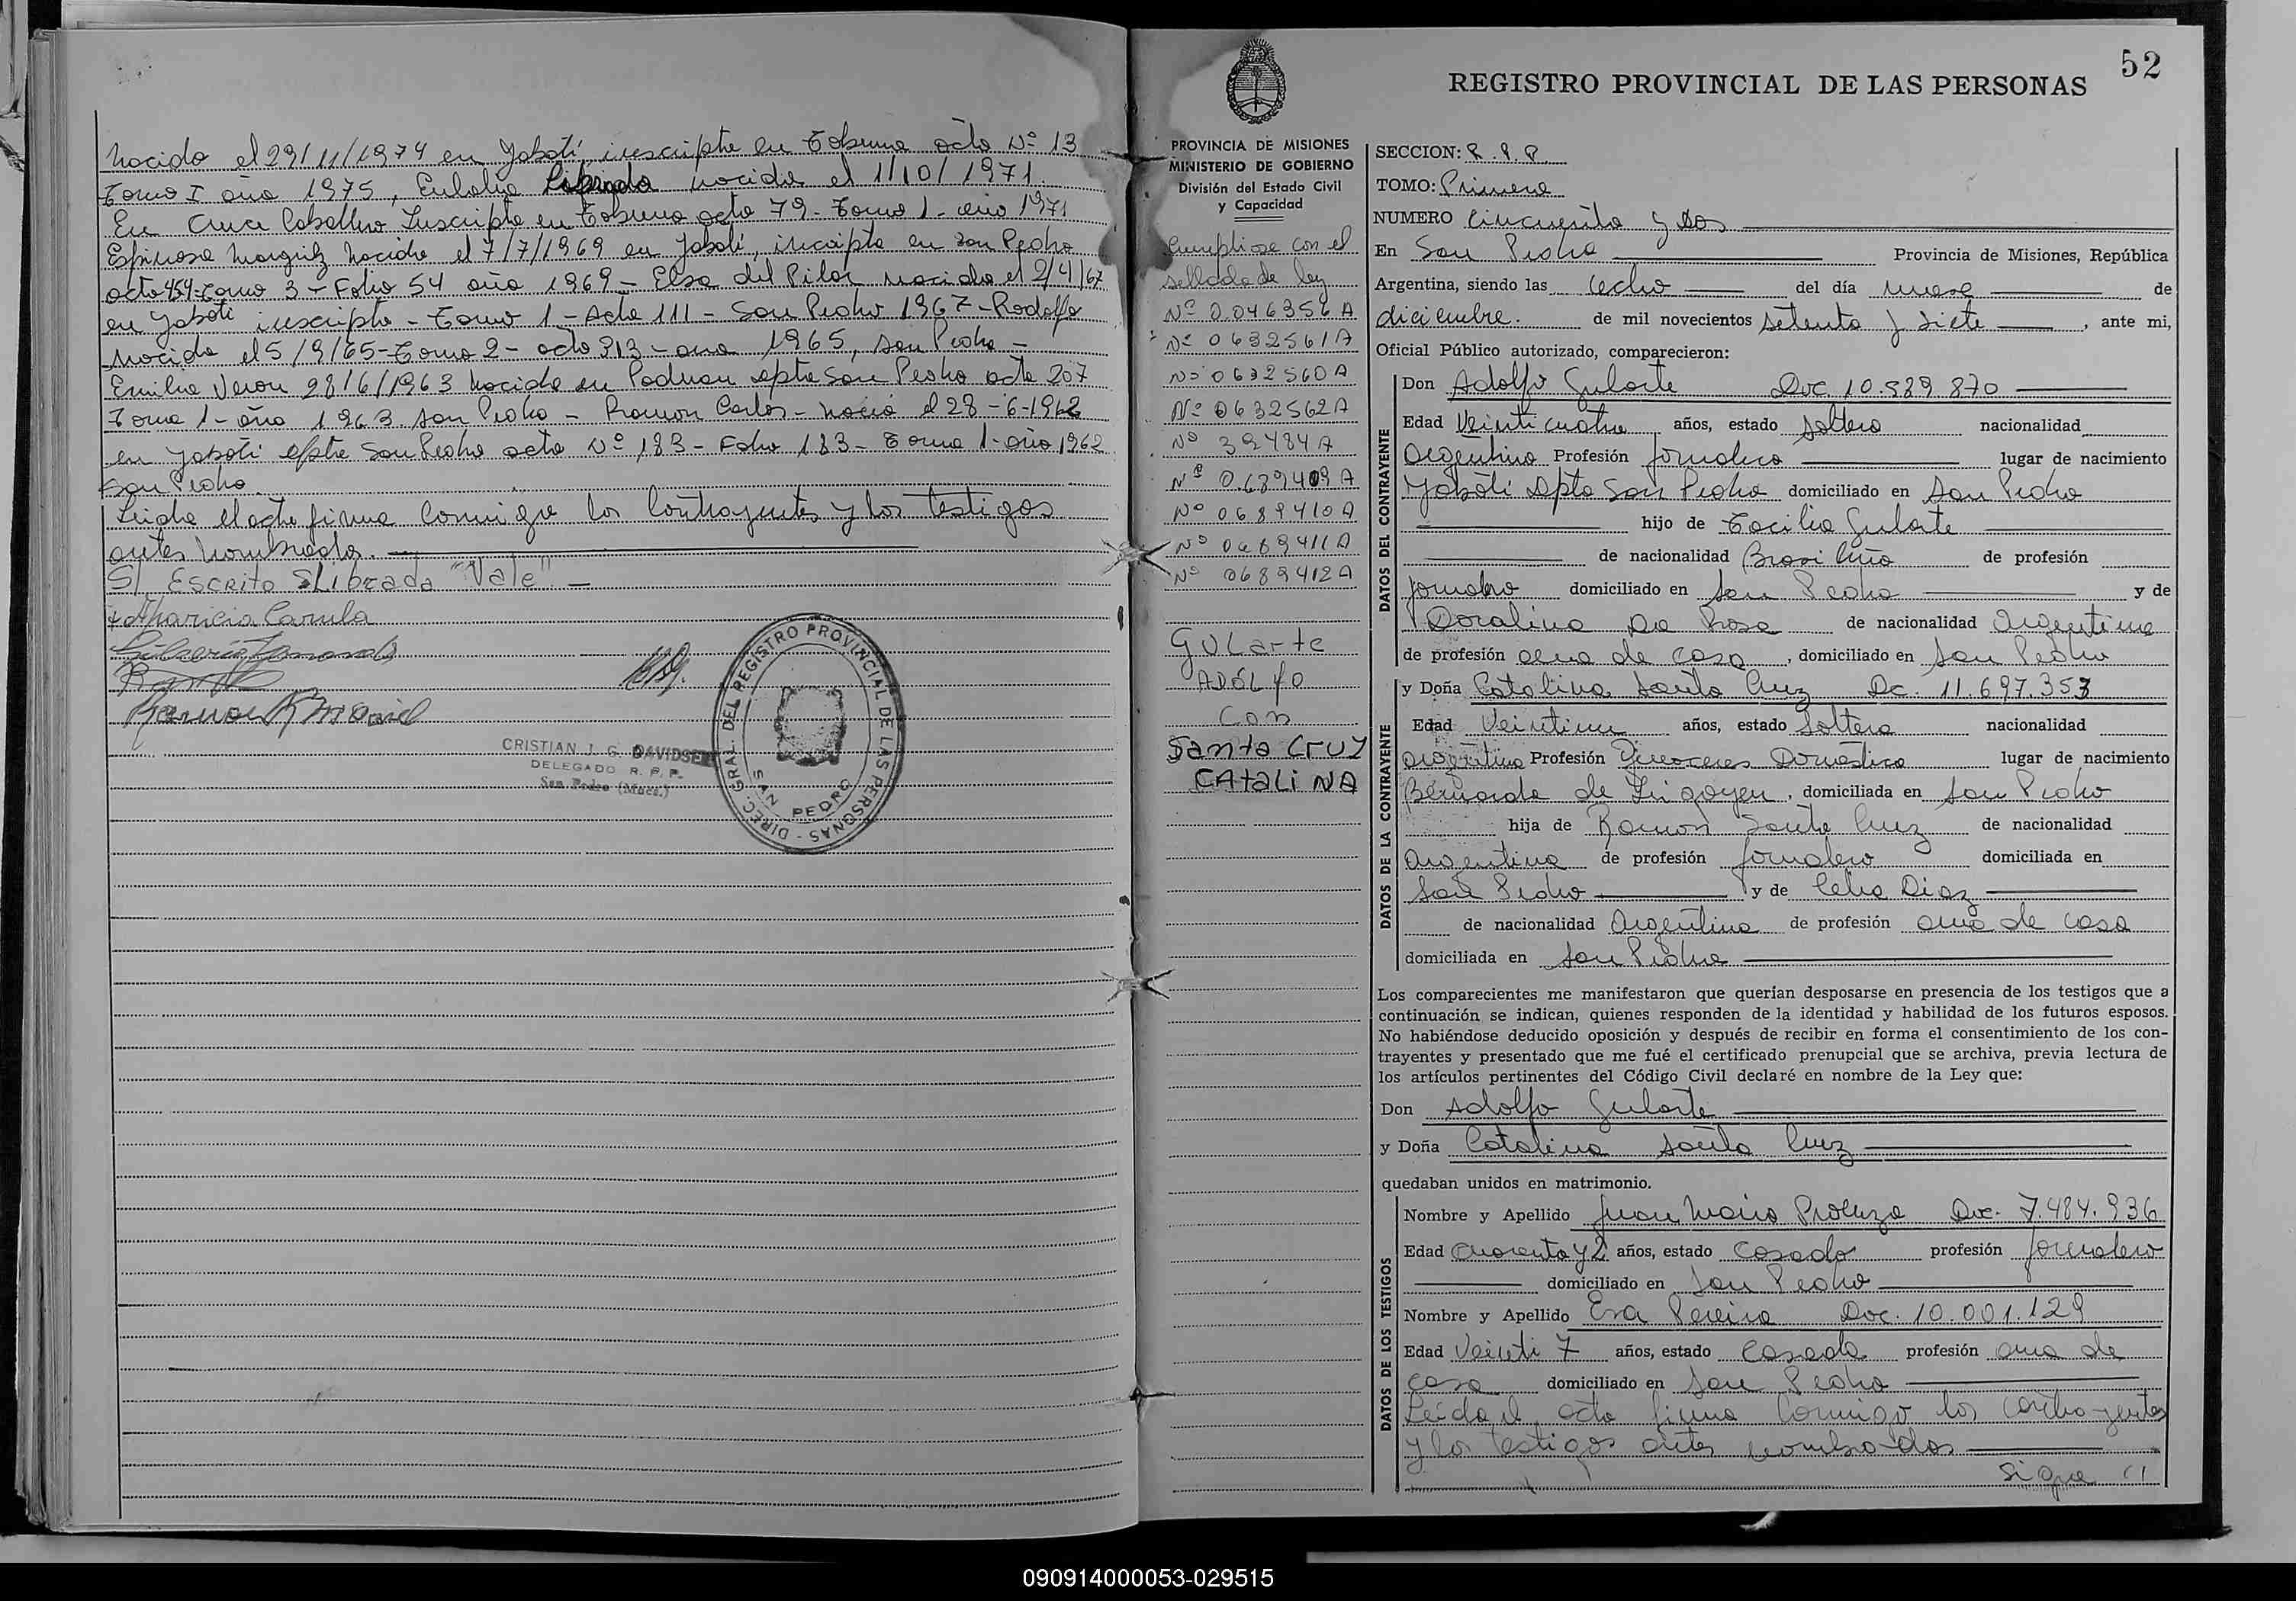 nacido el 29/11/1974 en Yabotí, inscripto en Tobuna acta Nº 13
Tomo I año 1975, Eulalia Librada nacida el 1/10/1971
En Cruce Caballero Inscripta en Tobuna acta 79 - Tomo 1 - año 1971
Espinosa nacida el 7/7/1969 en Yabotí, inscripta en San Pedro
acta 454 - Tomo 3 - Folio 54 año 1969 - Elsa del Pilar nacida el 2/4/67
en Yabotí inscripta - Tomo 1 - Acta 111 - San Pedro 1967 - Rodolfo
nacido el 5/9/65 - Tomo 2 - acta 313 - año 1965, San Pedro -
28/6/1963 nacido en Dpto San Pedro acta 207
Tomo 1 - año 1963. San Pedro - Ramon Carlos - nació el 28-6-1962
en Yabotí Dpto San Pedro acta Nº 183 - Folio 183 - Tomo 1 - año 1962
San Pedro
Leida el acta firma conmigo los contrayentes y los testigos
antes nombrados.
S/ Escrito SLibrada "Vale" -
CRISTIAN J. G. DAVIDSEN
DELEGADO R. P. P.
San Pedro (Mnes.)
DIREC. GRAL. DEL REGISTRO PROVINCIAL DE LAS PERSONAS -
SAN PEDRO
52
REGISTRO PROVINCIAL DE LAS PERSONAS
PROVINCIA DE MISIONES
MINISTERIO DE GOBIERNO
División del Estado Civil
y Capacidad
Cumpliose con el
sellado de ley
Nº 0.046356 A
Nº 0632561 A
Nº 0632560 A
Nº 0632562 A
Nº 39484 A
Nº 0689409 A
Nº 0689410 A
Nº 0689411 A
Nº 0689412 A
GULarte
ADOLfO
Con
Santa Cruz
CAtaLiNA
SECCION: R.P.P.
TOMO: Primero
NUMERO Cincuenta y dos
En San Pedro Provincia de Misiones, República
Argentina, siendo las ocho del día nueve de
diciembre. de mil novecientos setenta y siete, ante mi,
Oficial Público autorizado, comparecieron:
DATOS DEL CONTRAYENTE
Don Adolfo Gularte Doc. 10.539.870
Edad Veinticuatro años, estado soltero nacionalidad
Argentino Profesión jornalero lugar de nacimiento
Yabotí Dpto San Pedro domiciliado en San Pedro
hijo de Cecilio Gularte
de nacionalidad Brasileño de profesión
jornalero domiciliado en San Pedro y de
Doralina Da Rosa de nacionalidad Argentina
de profesión ama de casa, domiciliado en San Pedro
DATOS DE LA CONTRAYENTE
y Doña Catalina Santa Cruz Dc. 11.697.353
Edad Veintiun años, estado Soltera nacionalidad
argentina Profesión Quehaceres Domestica lugar de nacimiento
Bernardo de Irigoyen, domiciliada en San Pedro
hija de Ramon Santa Cruz de nacionalidad
Argentina de profesión jornalero domiciliada en
San Pedro y de Celia Diaz
de nacionalidad Argentina de profesión ama de casa
domiciliada en San Pedro
Los comparecientes me manifestaron que querían desposarse en presencia de los testigos que a
continuación se indican, quienes responden de la identidad y habilidad de los futuros esposos.
No habiéndose deducido oposición y después de recibir en forma el consentimiento de los con-
trayentes y presentado que me fué el certificado prenupcial que se archiva, previa lectura de
los artículos pertinentes del Código Civil declaré en nombre de la Ley que:
Don Adolfo Gularte
y Doña Catalina Santa Cruz
quedaban unidos en matrimonio.
DATOS DE LOS TESTIGOS
Nombre y Apellido Juan Mario Proenza Doc. 7.484.936
Edad Cuarenta y 2 años, estado Casado profesión jornalero
domiciliado en San Pedro
Nombre y Apellido Eva Pereira Doc. 10.001.129
Edad Veinti 7 años, estado Casada profesión ama de
casa domiciliado en San Pedro
Leida el acta firma conmigo los contrayentes
y los testigos antes nombrados
Sigue //
090914000053-029515